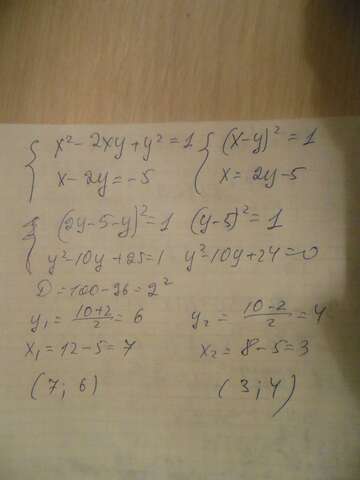 { x² - 2xy + y² = 1 { (x-y)² = 1
x - 2y = -5 x = 2y - 5
{ (2y-5-y)² = 1 (y-5)² = 1
y² - 10y + 25 = 1 y² - 10y + 24 = 0
D = 100 - 96 = 2²
y₁ = (10+2)/2 = 6 y₂ = (10-2)/2 = 4
x₁ = 12 - 5 = 7 x₂ = 8 - 5 = 3
(7; 6) (3; 4)